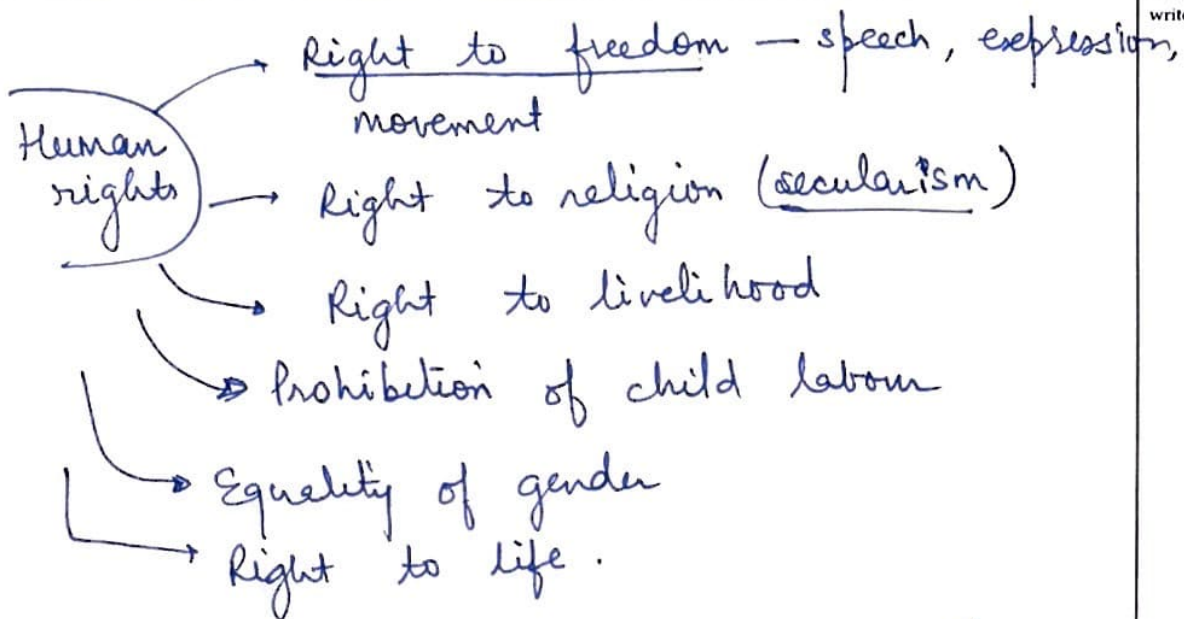 write
Right to freedom – speech, expression,
movement
Human
rights
Right to religion (secularism)
Right to livelihood
Prohibition of child labour
Equality of gender
Right to life.